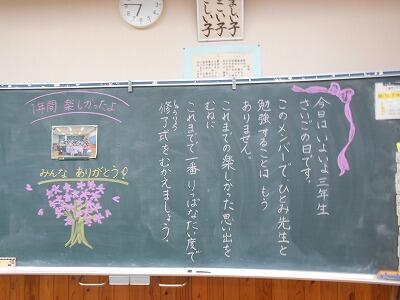 今日はいよいよ三年生
さいごの日です。
このメンバーで、ひとみ先生と
勉強することは もう
ありません。
これまでの楽しかった思い出を
むねに
これまでで一番 りっぱなたい度で
修了式をむかえましょう。
しゅうりょう
1年間 楽しかったよ
みんな ありがとう